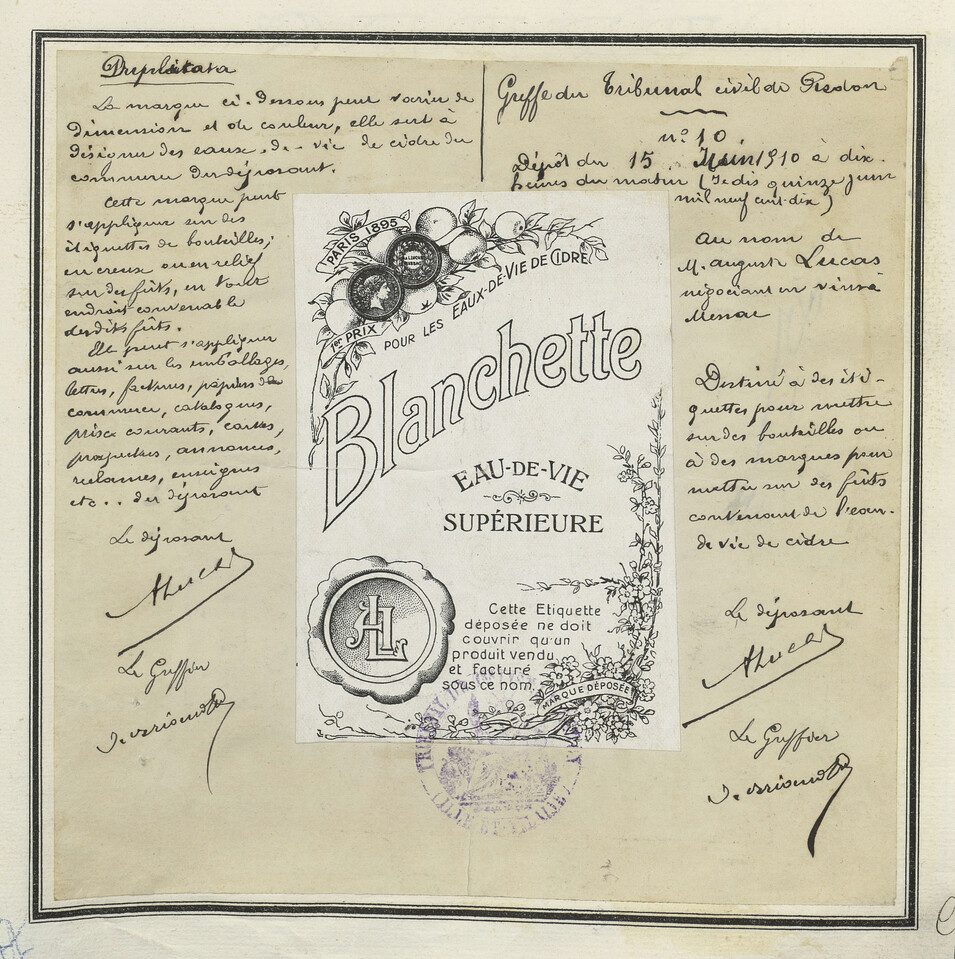 Duplicata
La marque ci-dessous peut varier de
dimension et de couleur, elle sert à
désigner des eaux-de-vie de cidre du
commerce du déposant.
Cette marque peut
s'appliquer sur des
étiquettes de bouteilles,
en creux ou en relief
sur des fûts, en tout
endroit convenable
desdits fûts.
Elle peut s'appliquer
aussi sur les emballages,
lettres, factures, papiers de
commerce, catalogues,
prix courants, cartes,
prospectus, annonces,
réclames, enseignes
etc.. du déposant
Le déposant
ALucas
Le Greffier
Greffe du Tribunal civil de Redon
n° 10
Dépôt du 15 Juin 1910 à dix
heures du matin (Je dis quinze juin
mil neuf cent dix)
au nom de
M. Auguste Lucas
négociant en vins à
Messac
Destiné à des éti-
quettes pour mettre
sur des bouteilles ou
à des marques pour
mettre sur des fûts
contenant de l'eau-
de vie de cidre
Le déposant
ALucas
Le Greffier
PARIS 1895
1er PRIX
POUR LES EAUX-DE-VIE DE CIDRE
Blanchette
EAU-DE-VIE
SUPÉRIEURE
AL
Cette Etiquette
déposée ne doit
couvrir qu'un
produit vendu
et facturé
sous ce nom.
MARQUE DÉPOSÉE
TRIBUNAL DE
ILLE-ET-VILAINE